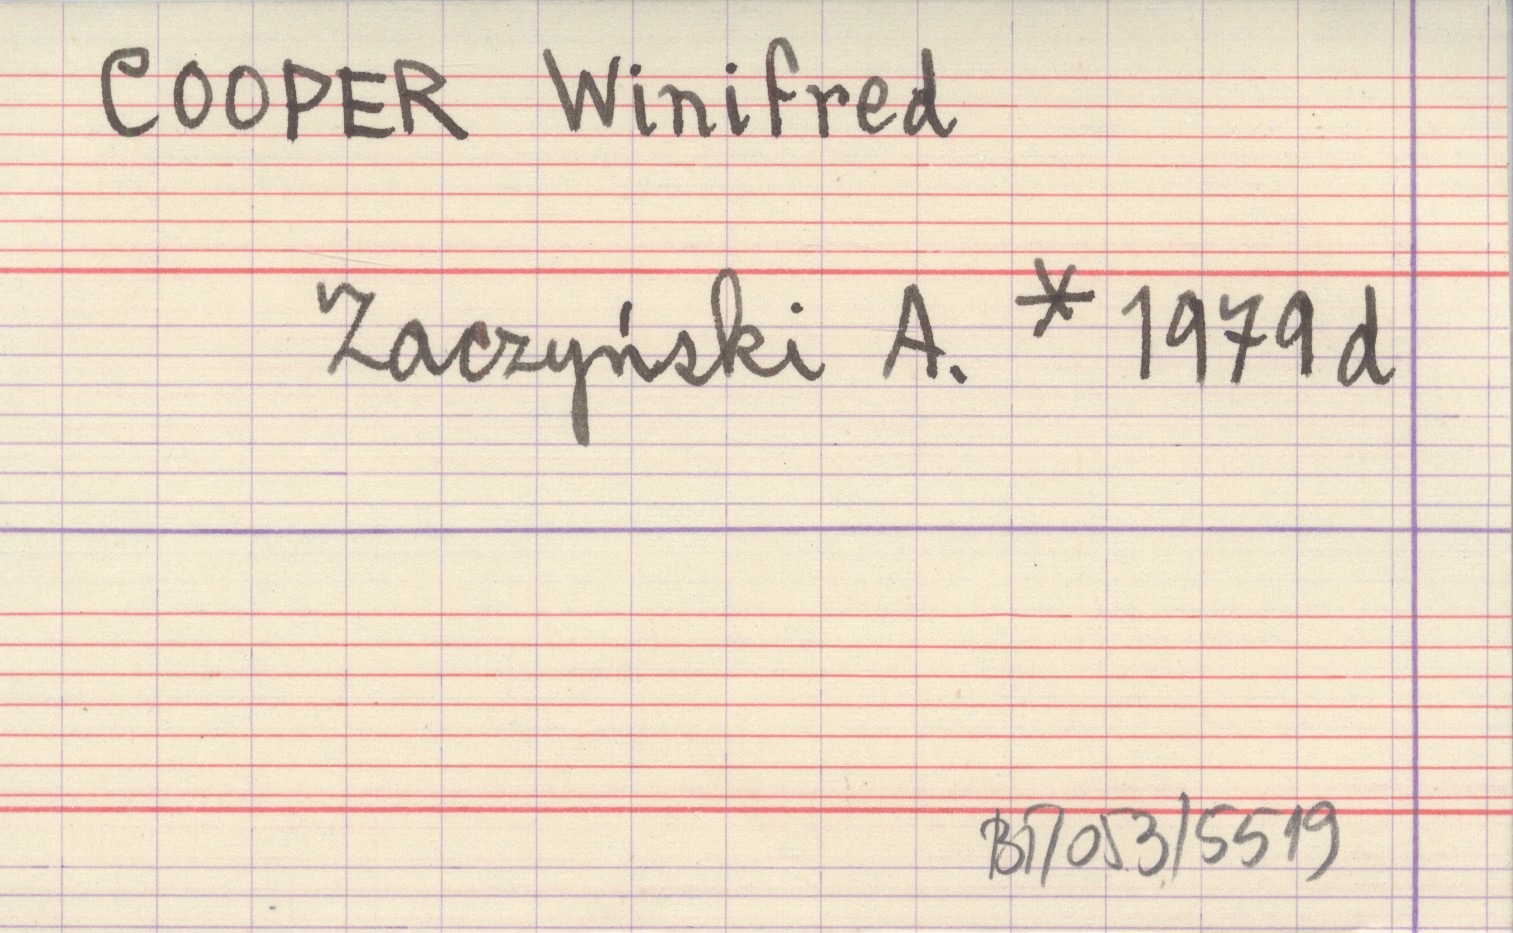 COOPER Winifred
Zaczyński A. * 1979 d
BT/053/5519